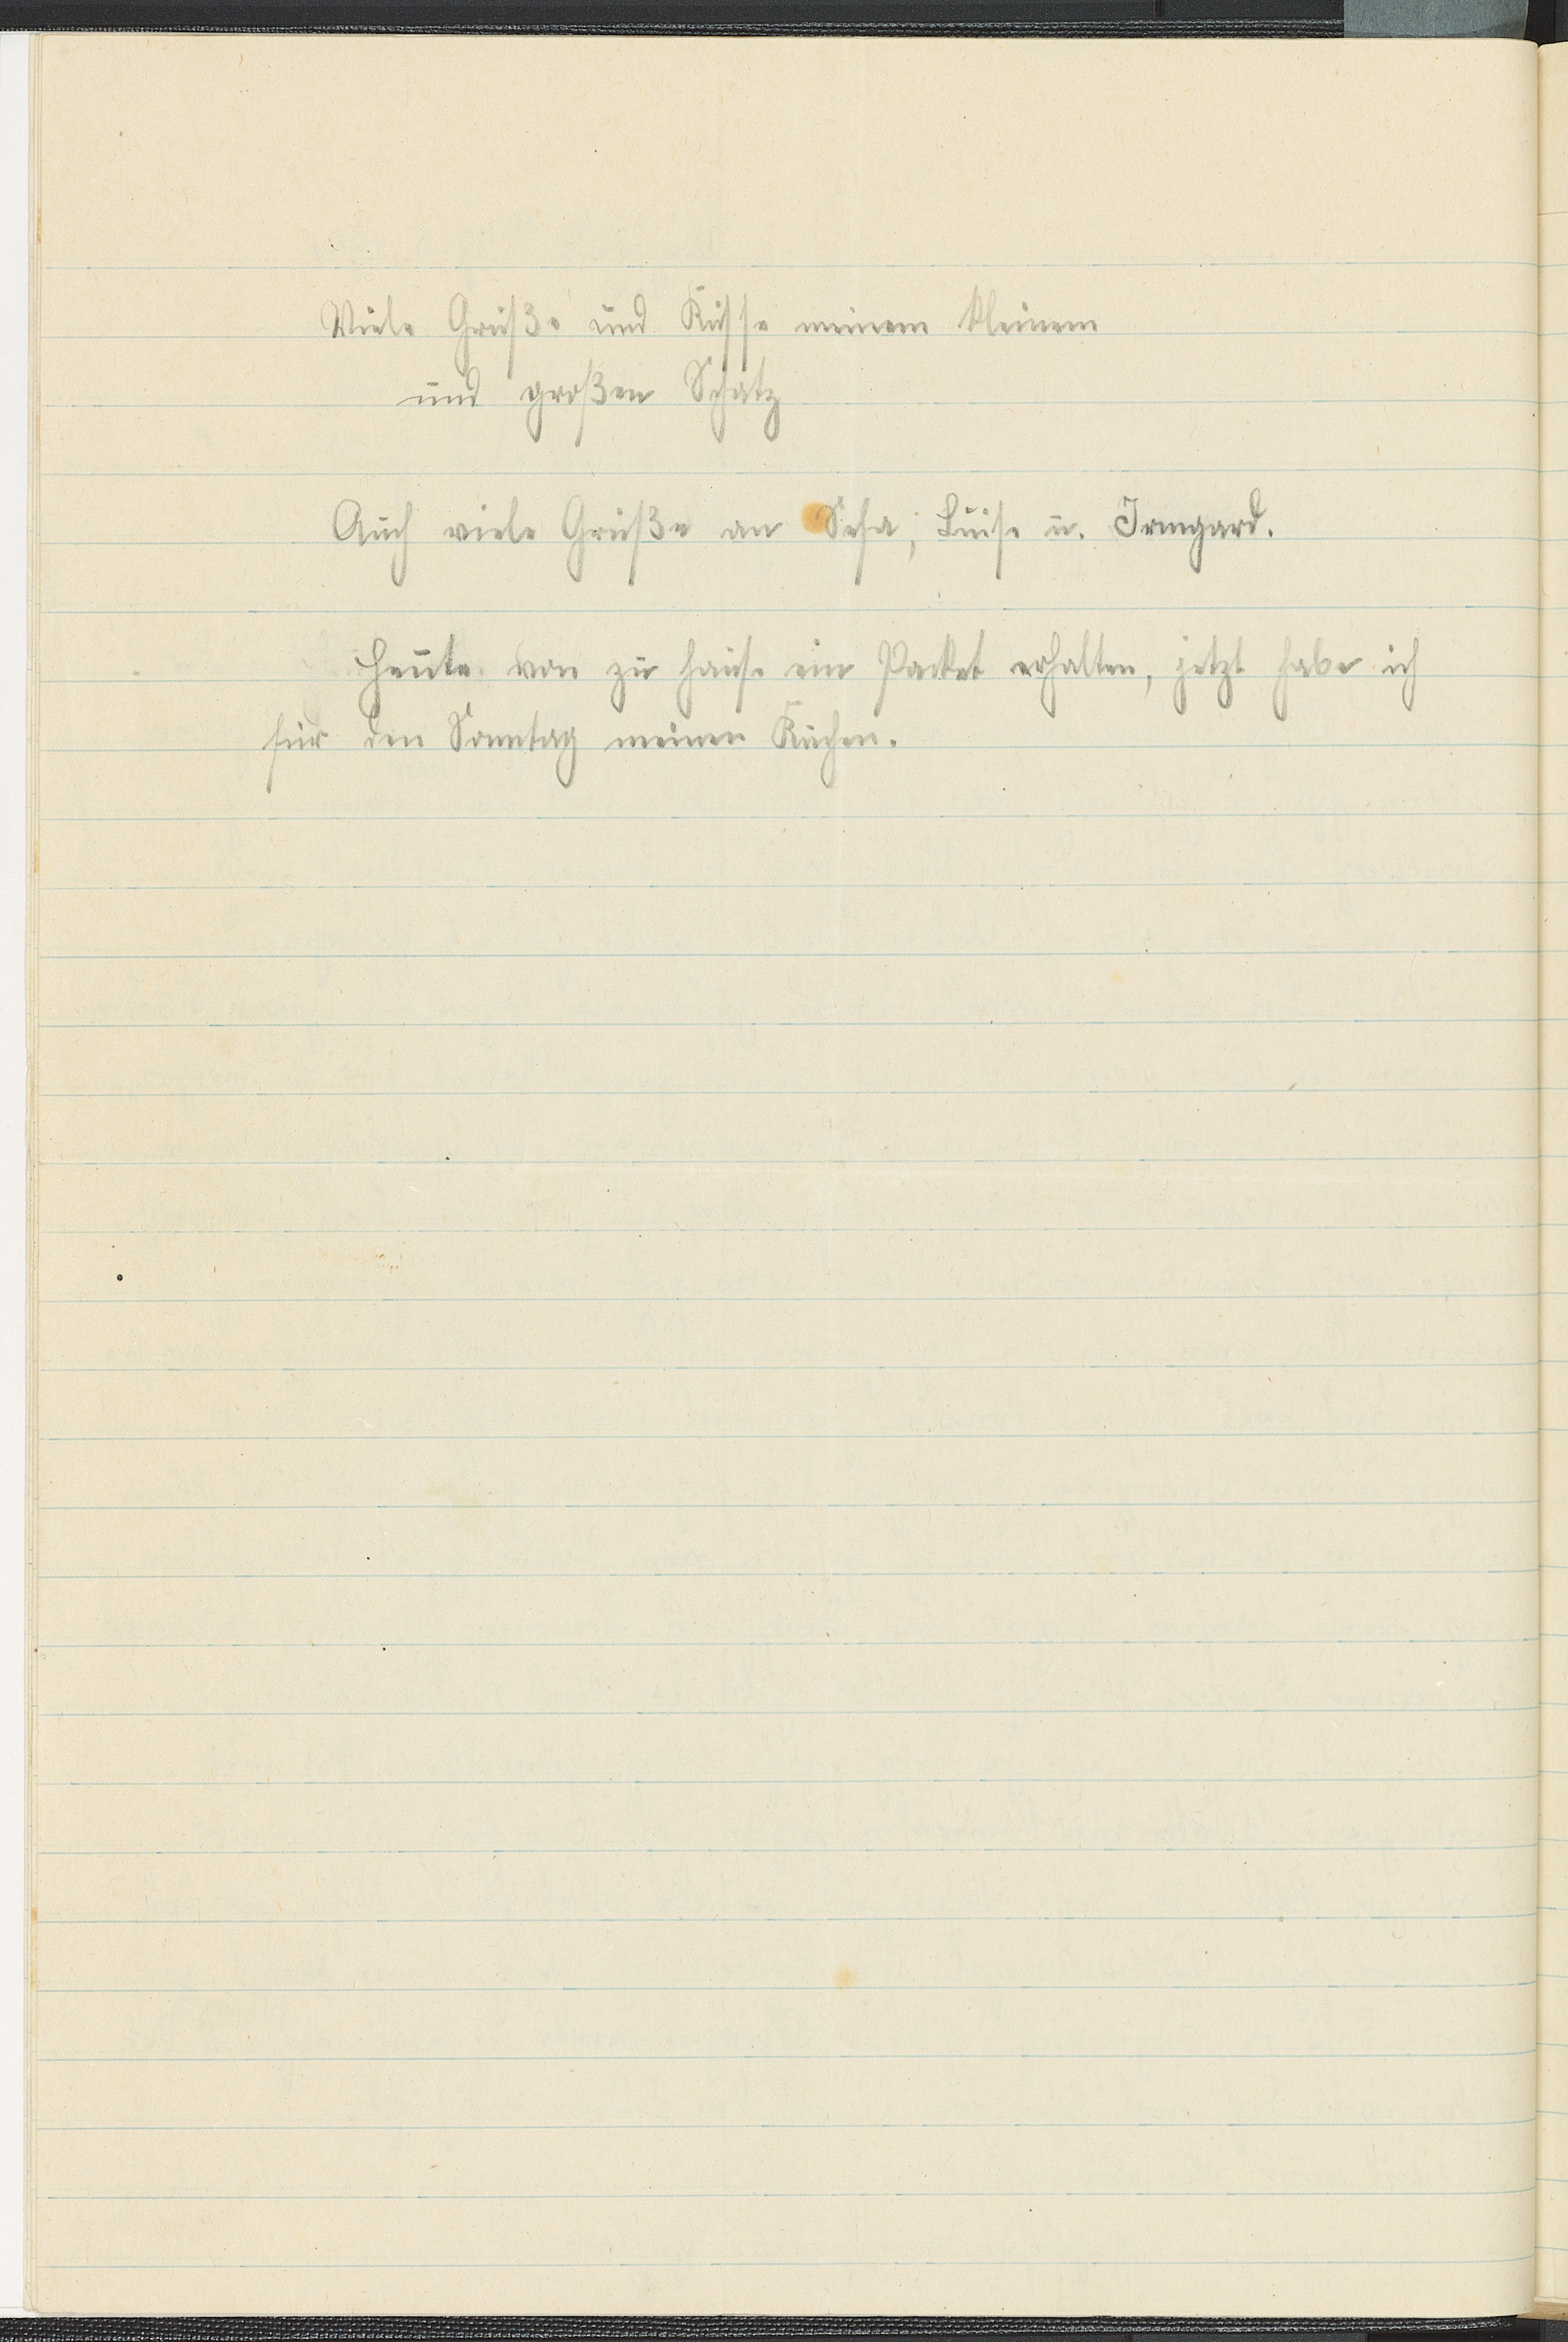 Viele Grüße und Küsse meinem kleinem
und großen Schatz
Auch viele Grüße an Sefa, Luise u. Irmgard.
Heute von zu hause ein Packet erhalten, jetzt habe ich
für den Sonntag meinen Kuchen.